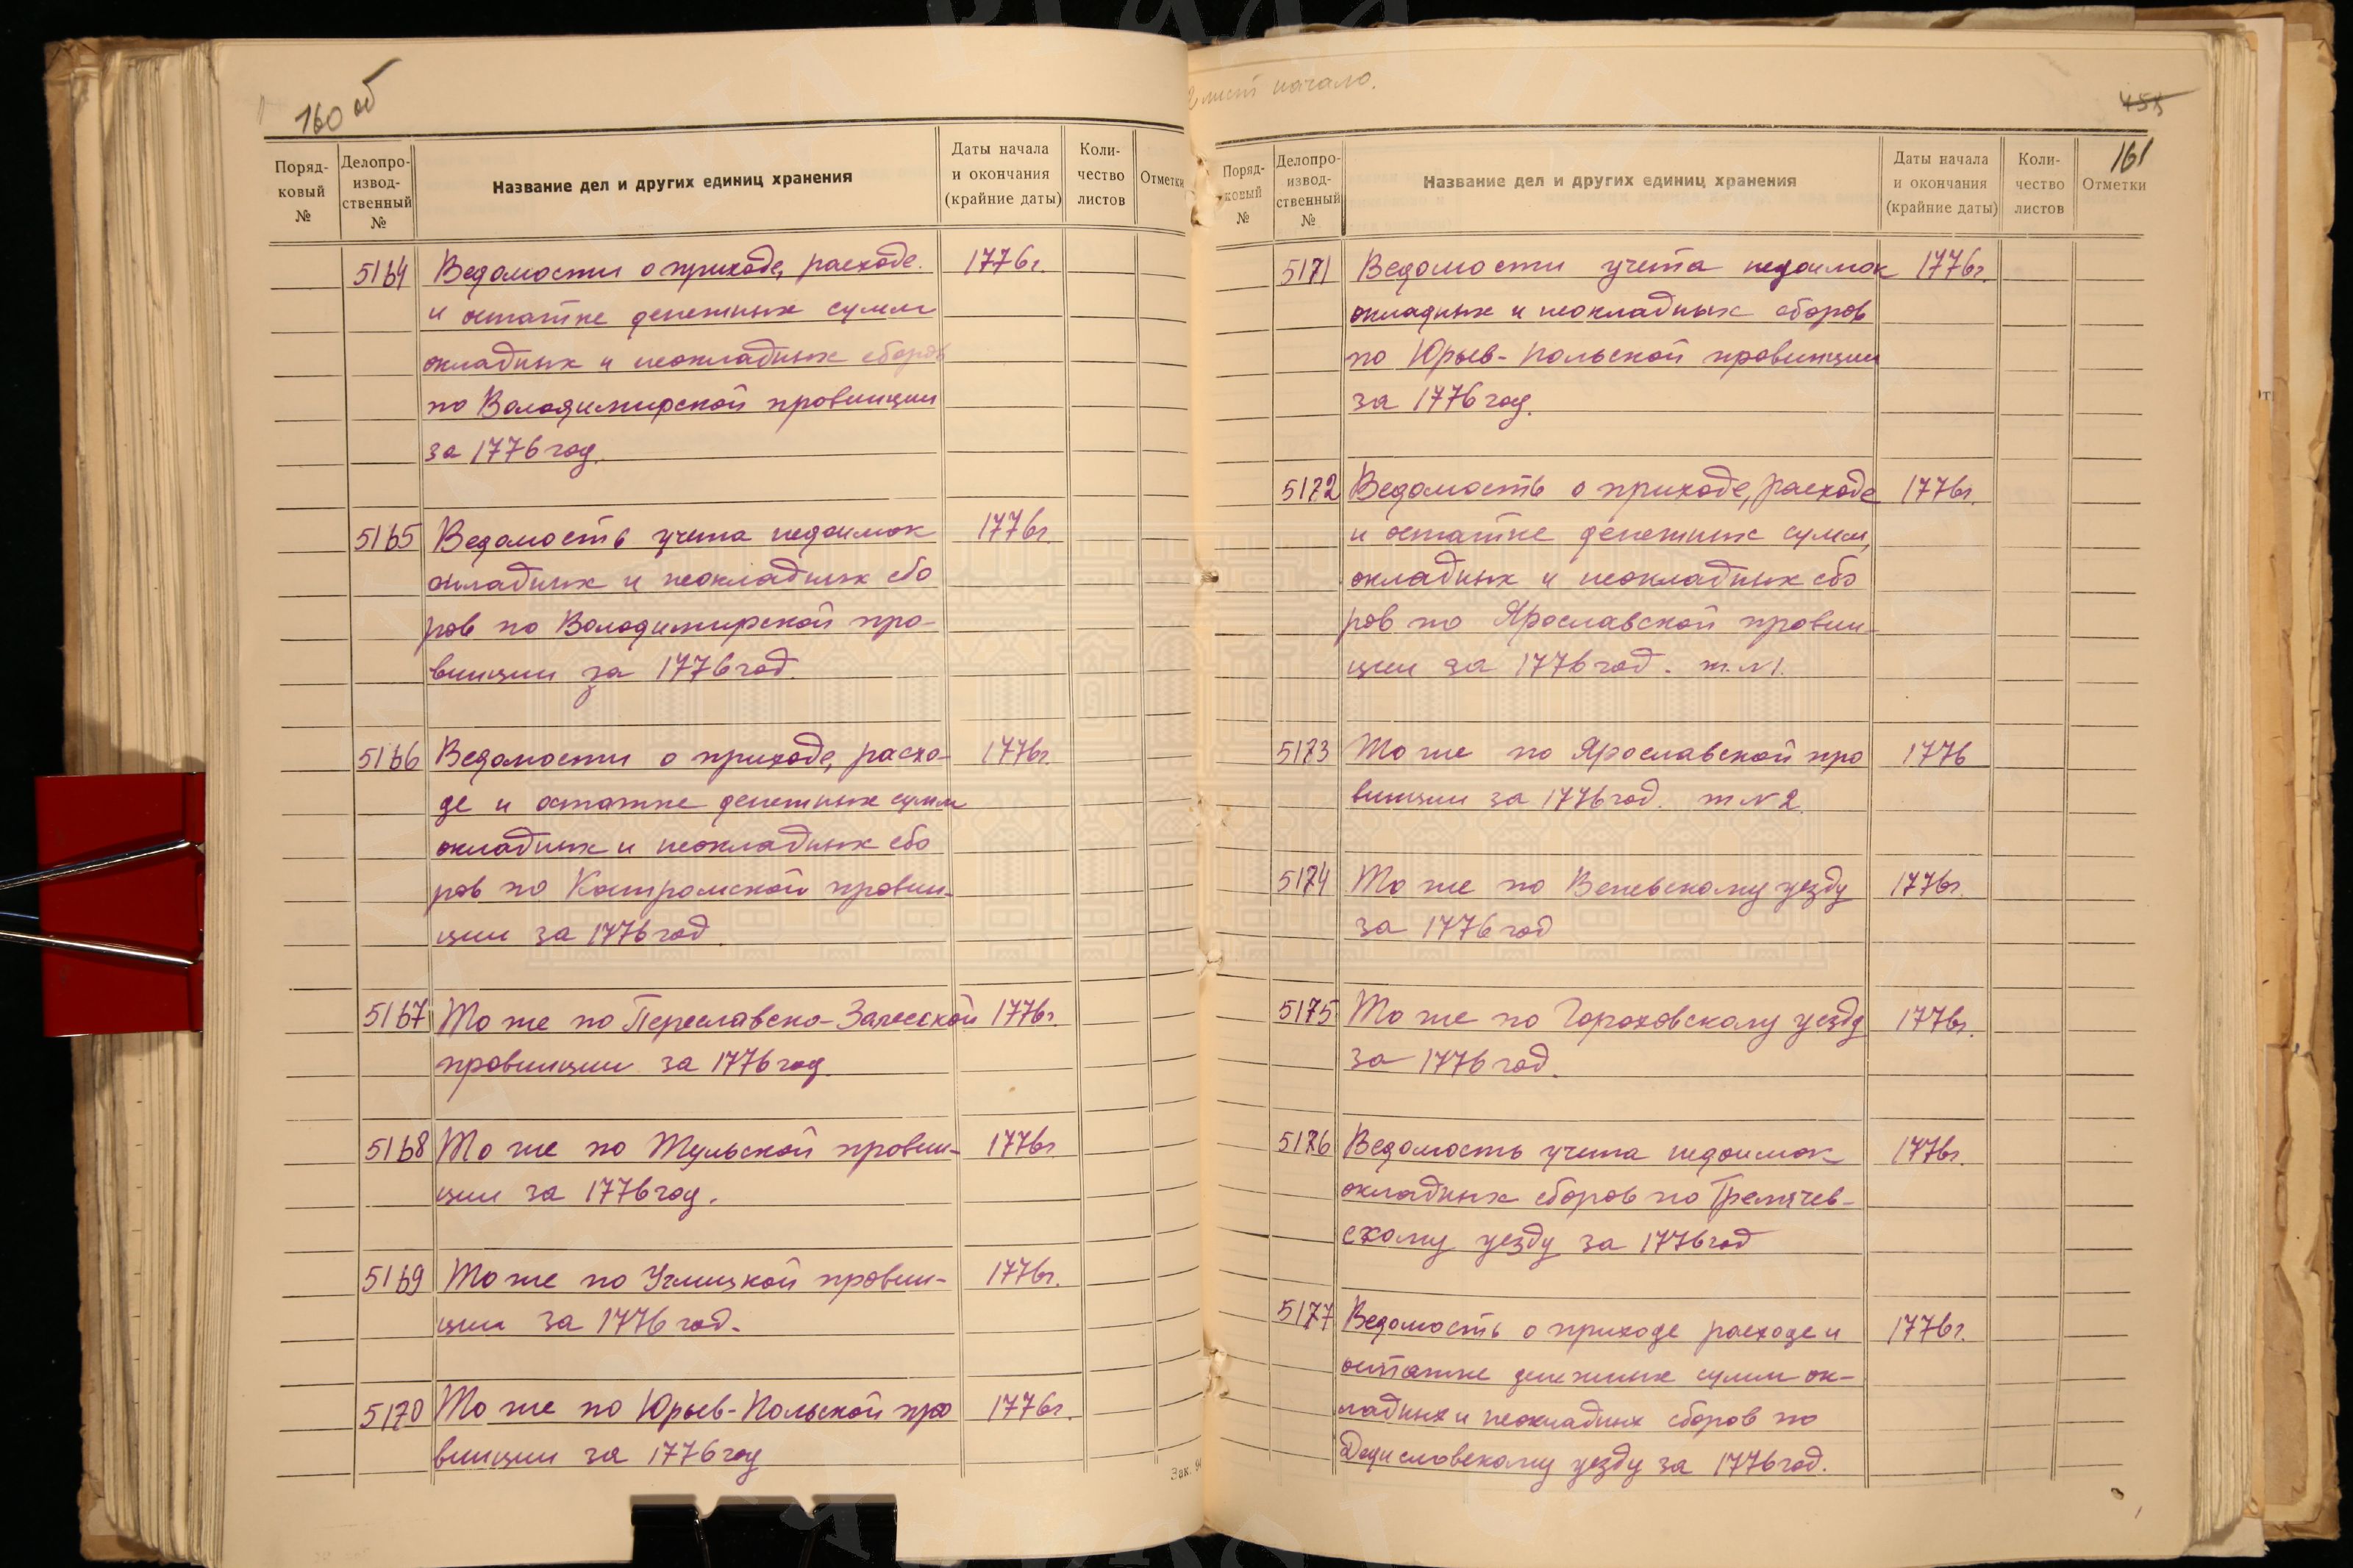 160 об
Поряд-
ковый
№
Делопро-
извод-
ственный
№
Название дел и других единиц хранения
Даты начала
и окончания
(крайние даты)
Коли-
чество
листов
Отметки
5164 Ведомости о приходе, расходе 1776г.
и остатке денежных сумм
окладных и неокладных сборов
по Володимирской провинции
за 1776 год.
5165 Ведомость учета недоимок 1776г.
окладных и неокладных сбо
ров по Володимирской про-
винции за 1776 год.
5166 Ведомости о приходе, расхо- 1776г.
де и остатке денежных сумм
окладных и неокладных сбо
ров по Костромской провин-
ции за 1776 год.
5167 То же по Переславско-Залесской 1776г.
провинции за 1776 год.
5168 То же по Тульской провин- 1776г
ции за 1776 год.
5169 То же по Углицкой провин- 1776г.
ции за 1776 год.
5170 То же по Юрьев-Польской про 1776г.
винции за 1776 год
Зак.
лист начало.
458
161
Поряд-
ковый
№
Делопро-
извод-
ственный
№
Название дел и других единиц хранения
Даты начала
и окончания
(крайние даты)
Коли-
чество
листов
Отметки
5171 Ведомости учета недоимок 1776г.
окладных и неокладных сборов
по Юрьев-Польской провинции
за 1776 год.
5172 Ведомость о приходе, расходе 1776г.
и остатке денежных сумм,
окладных и неокладных сбо
ров по Ярославской провин-
ции за 1776 год. т. N 1.
5173 То же по Ярославской про 1776
винции за 1776 год. т N 2.
5174 То же по Веневскому уезду 1776г.
за 1776 год
5175 То же по Гороховскому уезду 1776г.
за 1776 год.
5176 Ведомость учета недоимок 1776г.
окладных сборов по Гремячев-
скому уезду за 1776 год
5177 Ведомость о приходе расходе и 1776г.
остатке денежных сумм ок-
ладных и неокладных сборов по
Дедиловскому уезду за 1776 год.